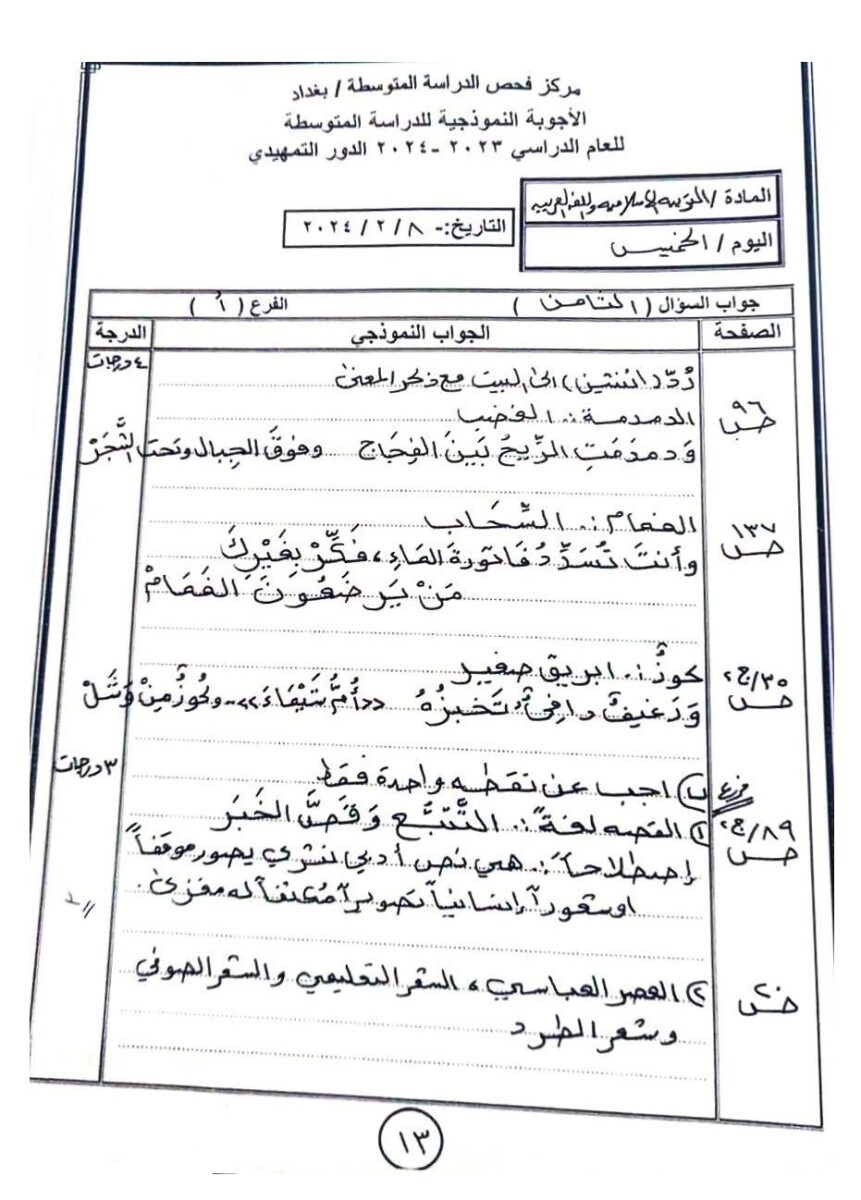 مركز فحص الدراسة المتوسطة / بغداد
الأجوبة النموذجية للدراسة المتوسطة
للعام الدراسي ٢٠٢٣ - ٢٠٢٤ الدور التمهيدي
المادة / التربية الاسلامية واللغة العربية
اليوم / الخميس
التاريخ:- ٨ / ٢ / ٢٠٢٤
جواب السؤال ( الثامن ) الفرع ( أ )
الصفحة الجواب النموذجي الدرجة
رُدّ (اثنتين) الى البيت مع ذكر المعنى ٤ درجات
ص ٩٦ الدمدمة :. الغضب
وَدمدَمَتِ الرِّيحُ بَينَ الفِجَاجِ وفوقَ الجبال وتحت الشَّجَرْ
ص ١٣٧ الغمام :. السَّحَاب
وأنتَ تُسَدِّدُ فَاتورةَ المَاءِ، فَكِّرْ بِغَيْرِكَ
مَنْ يَرضَعُونَ الغَمَامْ
ص ٣٥/ج٢ كوزُ :. ابريق صغير
وَرَغيفٌ دافئٌ تَخبزُهُ <<أُمُّ شَيْفَاءَ>>.. وكُوزُ مِنْ وَشَلْ
فرع ب) اجب عن نقطه واحدة فقط ٣ درجات
ص ٨٩/ج٢ ١) القصه لغةً :. التَّتبُّع وَقَصَّ الخَبَرَ
إصطلاحاً :. هي نص أدبي نثري يصور موقفاً
او شعوراً إنسانياً تصويراً مُكثفاً له مغزى.
ص ٢٠ ٢) العصر العباسي ، الشعر التعليمي والشعر الصوفي
وشعر الطرد
١٣